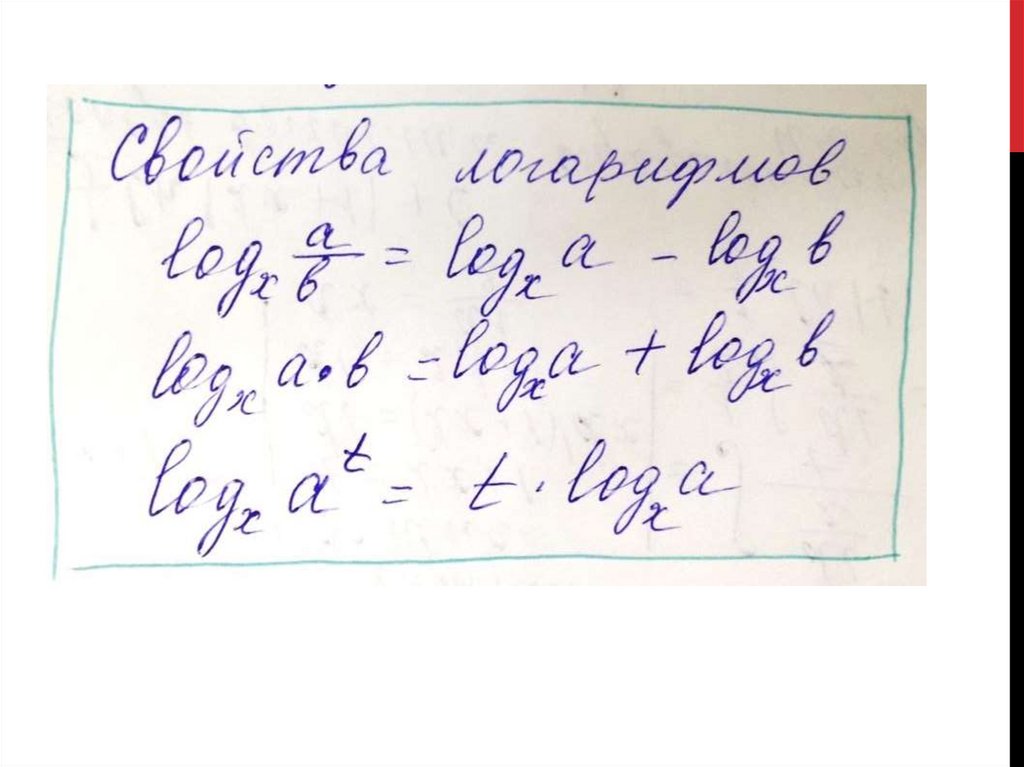 Свойства логарифмов
logₓ a/в = logₓ a - logₓ в
logₓ a·в = logₓ a + logₓ в
logₓ aᵗ = t · logₓ a